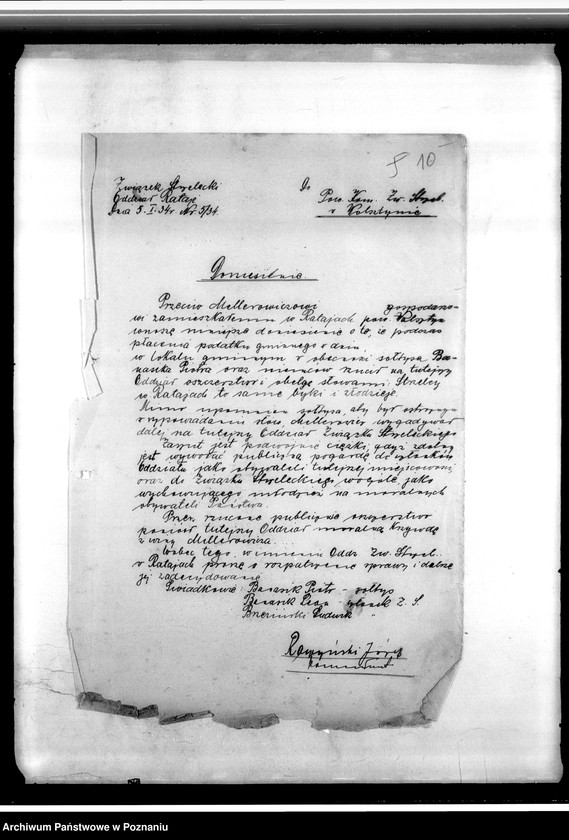 10
Związek Strzelecki
Oddział Rataje
Dnia 5. I. 34 r. Nr. 5/34
Do
Pow. Kom. Zw. Strzel.
w Wolsztynie
Doniesienie
Przeciw Mellerowiczowi gospodarzo-
wi zamieszkałemu w Ratajach pow. Wolsztyn
wnoszę niniejsze doniesienie o to, iż podczas
płacenia podatku gminnego w dniu
w lokalu gminnym w obecności sołtysa Ba-
Piotra oraz rzucił na tutejszy
Oddział oszczerstwo i obelgę słowami: Strzelcy
w Ratajach to same byki i złodzieje.
Mimo upomnień sołtysa, aby był ostrożny
w wypowiadaniu słów, Mellerowicz wygadywał
dalej na tutejszy Oddział Związku Strzeleckiego
Zarzut jest podwójnie ciężki, gdyż zdolny
jest wywołać publiczną pogardę do członków
Oddziału jako obywateli tutejszej miejscowości
oraz do Związku Strzeleckiego wogóle jako
wychowującego młodzież na moralnych
obywateli Państwa.
Przez rzucone publicznie oszczerstwo
poniósł tutejszy Oddział moralną krzywdę
z winy Mellerowicza.
Wobec tego, w imieniu Oddz. Zw. Strzel.
w Ratajach proszę o rozpatrzenie sprawy i dalsze
jej zadecydowanie
Świadkowie: Banasik Piotr - sołtys
Banasik - członek Z. S.
Brzeziński Ludwik "
Józef
komendant
Archiwum Państwowe w Poznaniu